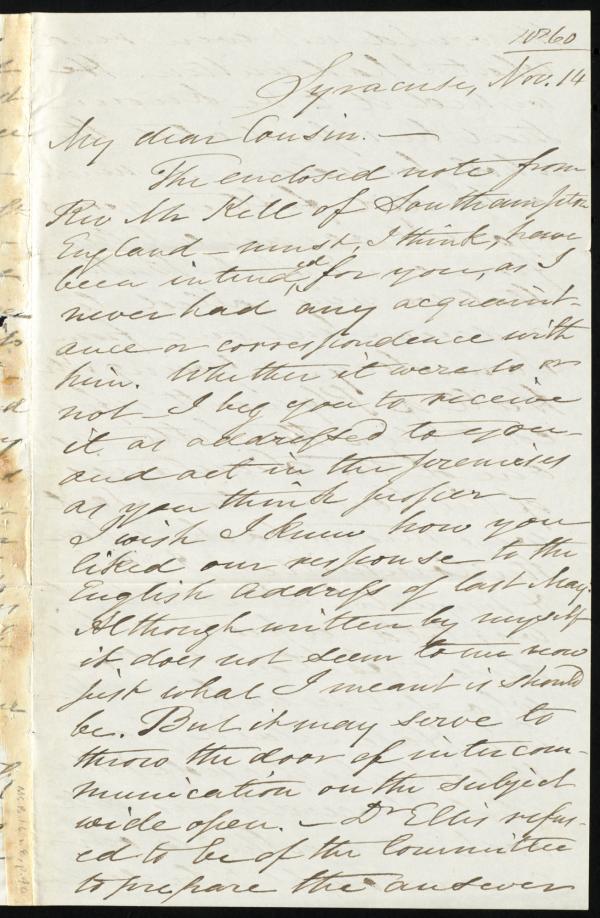 1860
Syracuse, Nov. 14
My dear Cousin. —
The enclosed note from
Rev Mr Kell of Southampton
England — must, I think, have
been intended, for you, as I
never had any acquaint-
ance or correspondence with
him. Whether it were so or
not I beg you to receive
it as addressed to you
and act in the premises
as you think proper —
I wish I knew how you
liked our response to the
English Address of last May.
Although written by myself
it does not seem to me now
just what I meant it should
be. But it may serve to
throw the door of intercom-
munication on the subject
wide open. — Dr Ellis refus-
ed to be of the Committee
to prepare the answer